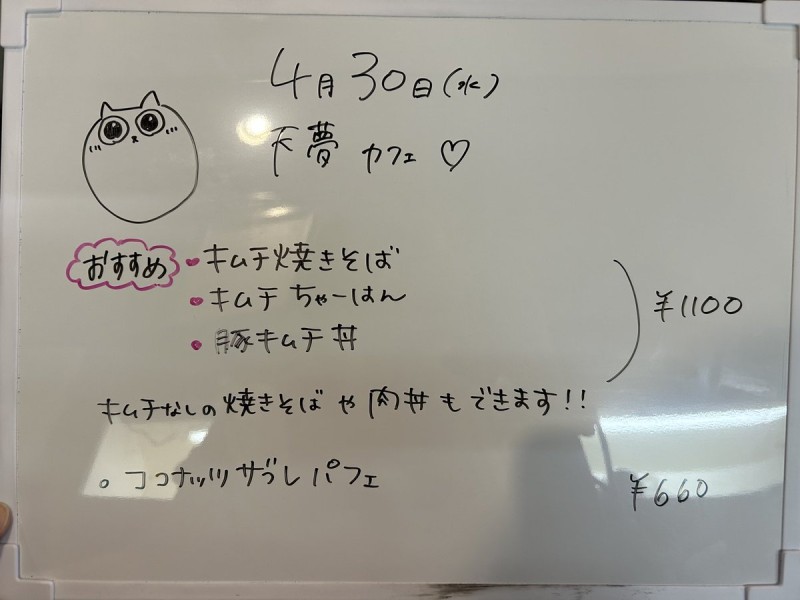 4月30日(水)
天夢 カフェ ♡
おすすめ
・キムチ焼きそば
・キムチ ちゃーはん
・豚キムチ丼
¥1100
キムチなしの焼きそばや肉丼もできます!!
。ココナッツサブレパフェ
¥660